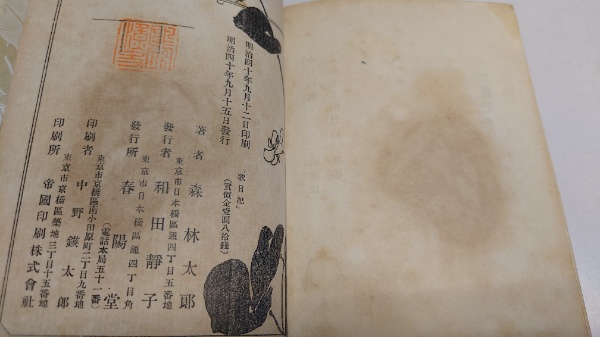 明治四十年九月十二日印刷
明治四十年九月十五日發行
歌日記
(實價金壹圓八拾錢)
著者 森林太郎
東京市日本橋區通四丁目五番地
發行者 和田靜子
東京市日本橋區通四丁目角
發行所 春陽堂
(電話本局五十一番)
東京市京橋區南小田原町二丁目九番地
印刷者 中野鍈太郎
東京市京橋區築地三丁目十五番地
印刷所 帝國印刷株式會社